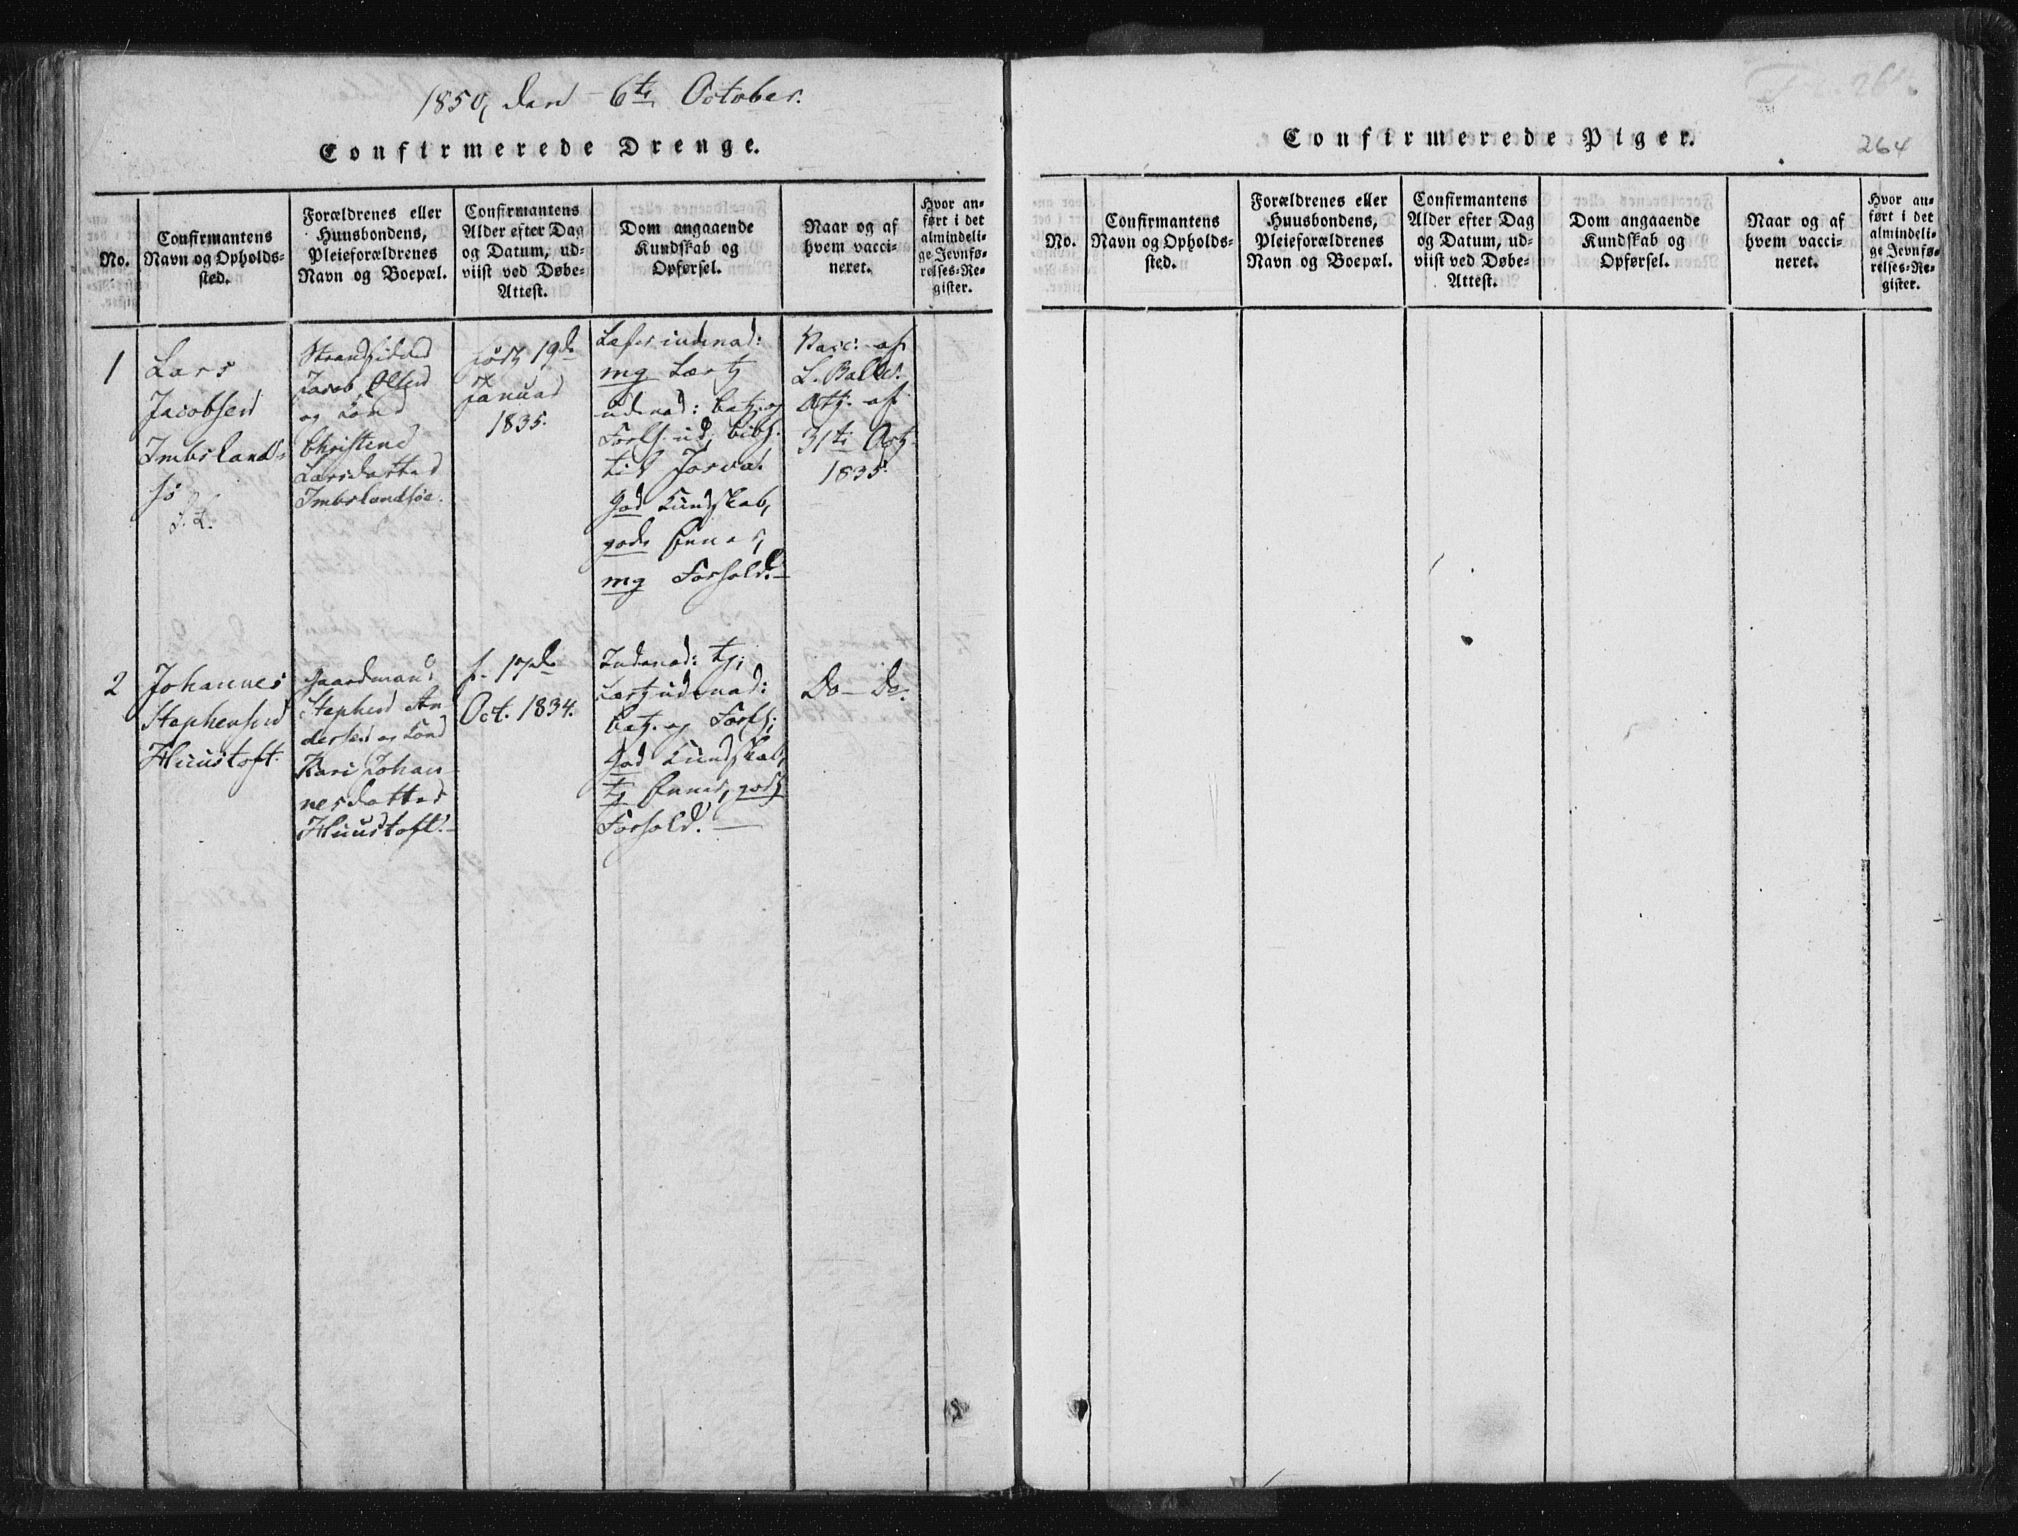 1850, den 6te October.
Confirmerede Drenge.
No.
Confirmantens
Navn og Opholds-
sted.
Forældrenes eller
Huusbondens,
Pleieforældrenes
Navn og Boepæl.
Confirmantens
Alder efter Dag
og Datum, ud-
viist ved Døbe-
Attest.
Dom angaaende
Kundskab og
Opførsel.
Naar og af
hvem vacci-
neret.
Hvor an-
ført i det
almindeli-
ge Jevnfø-
relses-Re-
gister.
1
Lars
Jacobsen
Imbsland-
sø
Strandsidder
Jacob Olsen
og Kone
Christine
Larsdatter
Imbslandsøe.
født 19de
Januar
1835.
Læser indenad:
mg Lært
udenad:
Forkl. ud
til
God Kundskab,
gode Evner,
mg Forhold.
Vacc: af
L. Balle
Att. af
31te Oct.
1835.
2
Johannes
Stephensen
Huustoft.
Gaardmand
Stephen An
dersen og Kone
Kari Johan-
nesdatter
Huustoft.
f. 17de
Oct. 1834.
Indenad: tg;
Lært udenad:
og Forkl;
God Kundskab,
tg Evner, godt
Forhold.
Do - Do.
Confirmerede Piger.
264
No.
Confirmantens
Navn og Opholds-
sted.
Forældrenes eller
Huusbondens,
Pleieforældrenes
Navn og Boepæl.
Confirmantens
Alder efter Dag
og Datum, ud-
viist ved Døbe-
Attest.
Dom angaaende
Kundskab og
Opførsel.
Naar og af
hvem vacci-
neret.
Hvor an-
ført i det
almindeli-
ge Jevnfø-
relses-Re-
gister.